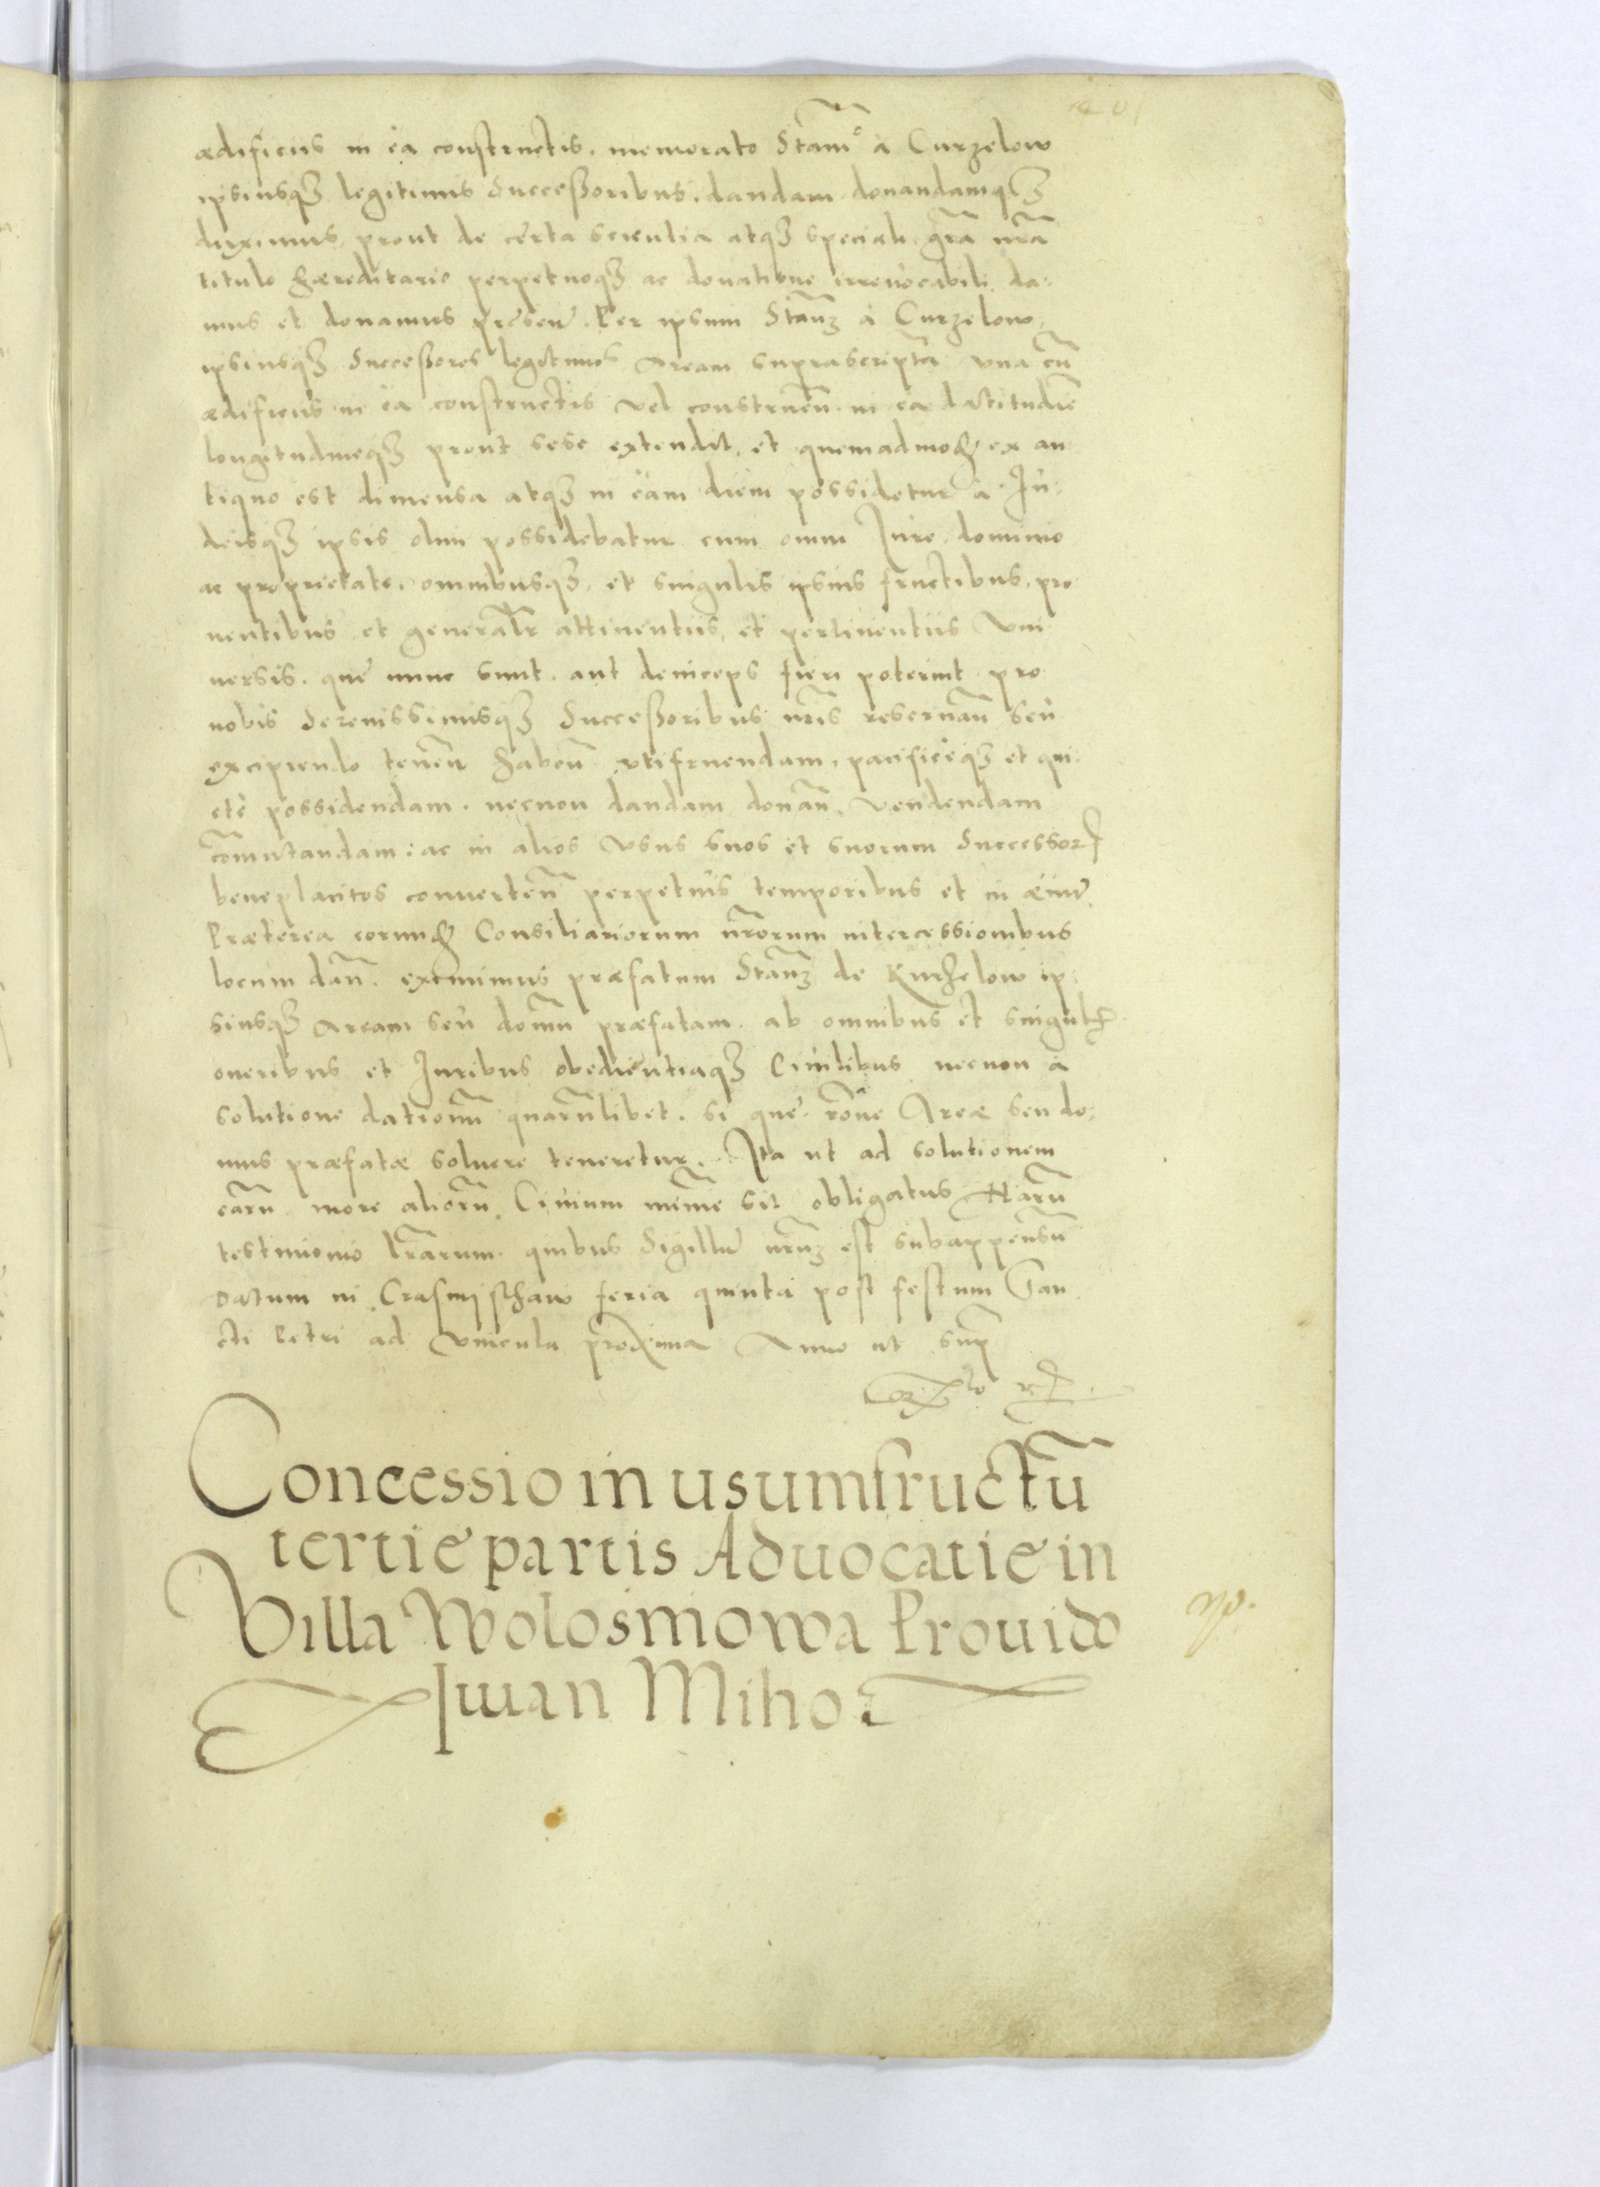 ædificiis in ea constructis. memorato Stanᵒ à Curzelow
ipsiusq3 legitimis Successoribus. dandam donandamq3
duximus, prout de certa scientia atq3 speciali grã nrã
titulo hæreditario perpetuoq3 ac donatione irrevocabili da:
mus et donamus presen̄. Per ipsum Stanz à Curzelow,
ipsiusq3 Successores legitimos Aream suprascriptã una cũ
ædificiis in ea constructis vel construen̄. in ea latitudie
longitudineq3 prout sese extendit, et quemadmod ex an
tiquo est dimensa atq3 in eam diem possidetur à Iu:
deisq3 ipsis olim possidebatur cum omni Iure dominio
ac proprietate. omnibusq3 et singulis ipsius fructibus. pro
ventibus et generalr attinentiis, et pertinentiis Uni
versis. que nunc sunt. aut deinceps fieri poterint. pro
nobis Serenissimisq3 Successoribus nr̄is reservan̄ seu
excipiendo tenen̄ haben̄ utifruendam, pacificeq3 et qui
ete possidendam. necnon dandam donan̄. vendendam
com̄utandam: ac in alios Usus suos et suorum Successor
beneplacitos converten̄ perpetuis temporibus et in æuū
Præterea eorund Consiliariorum nr̄orum intercessionibus
locum dan̄. eximimus præfatum Stanz de Kurzelow ip:
siusq3 Aream seu domũ præfatam. ab omnibus et singul
oneribus et Iuribus obedientiaq3 Civilibus necnon à
solutione dationũ quarũlibet. si que rõne Areæ seu do:
mus præfatæ solvere teneretur. Ita ut ad solutionem
earũ more aliorũ Civium minime sit obligatus Harũ
testimonio lr̄arum. quibus Sigillũ nr̄uz est subappensũ
Datum in Crasnijsthaw feria quinta post festum San
cti Petri ad Vincula proxima Anno ut sup
Concessio in usumfructũ
tertie partis Aduocatie in
Villa Wolosmowa Prouido
Iwan Miho